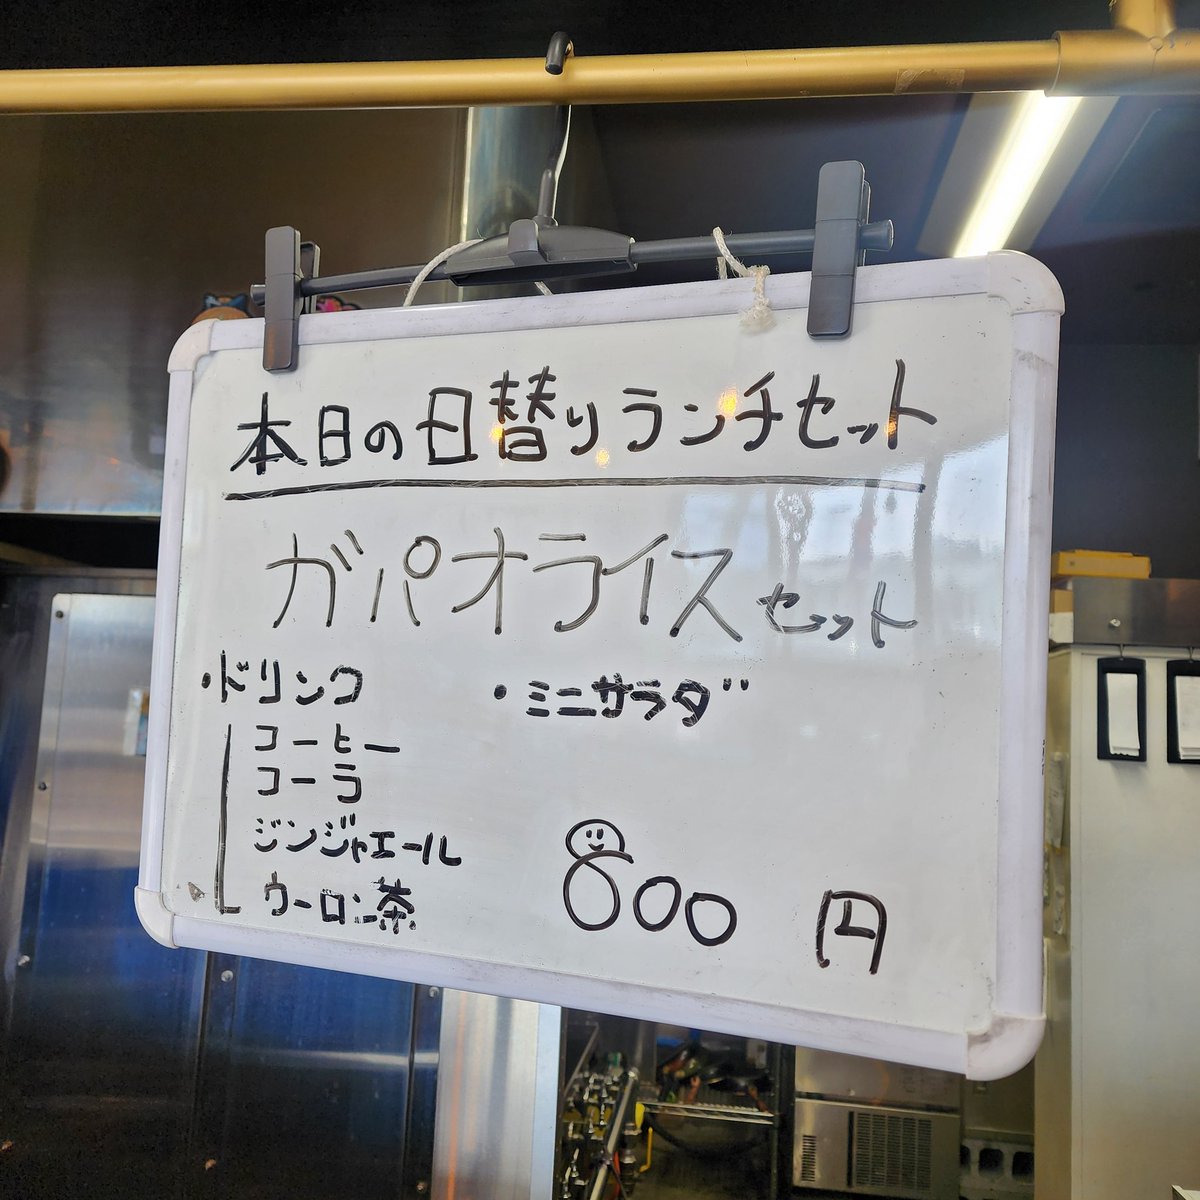 本日の日替りランチセット
ガパオライスセット
・ドリンク
コーヒー
コーラ
ジンジャエール
ウーロン茶
・ミニサラダ
800 円